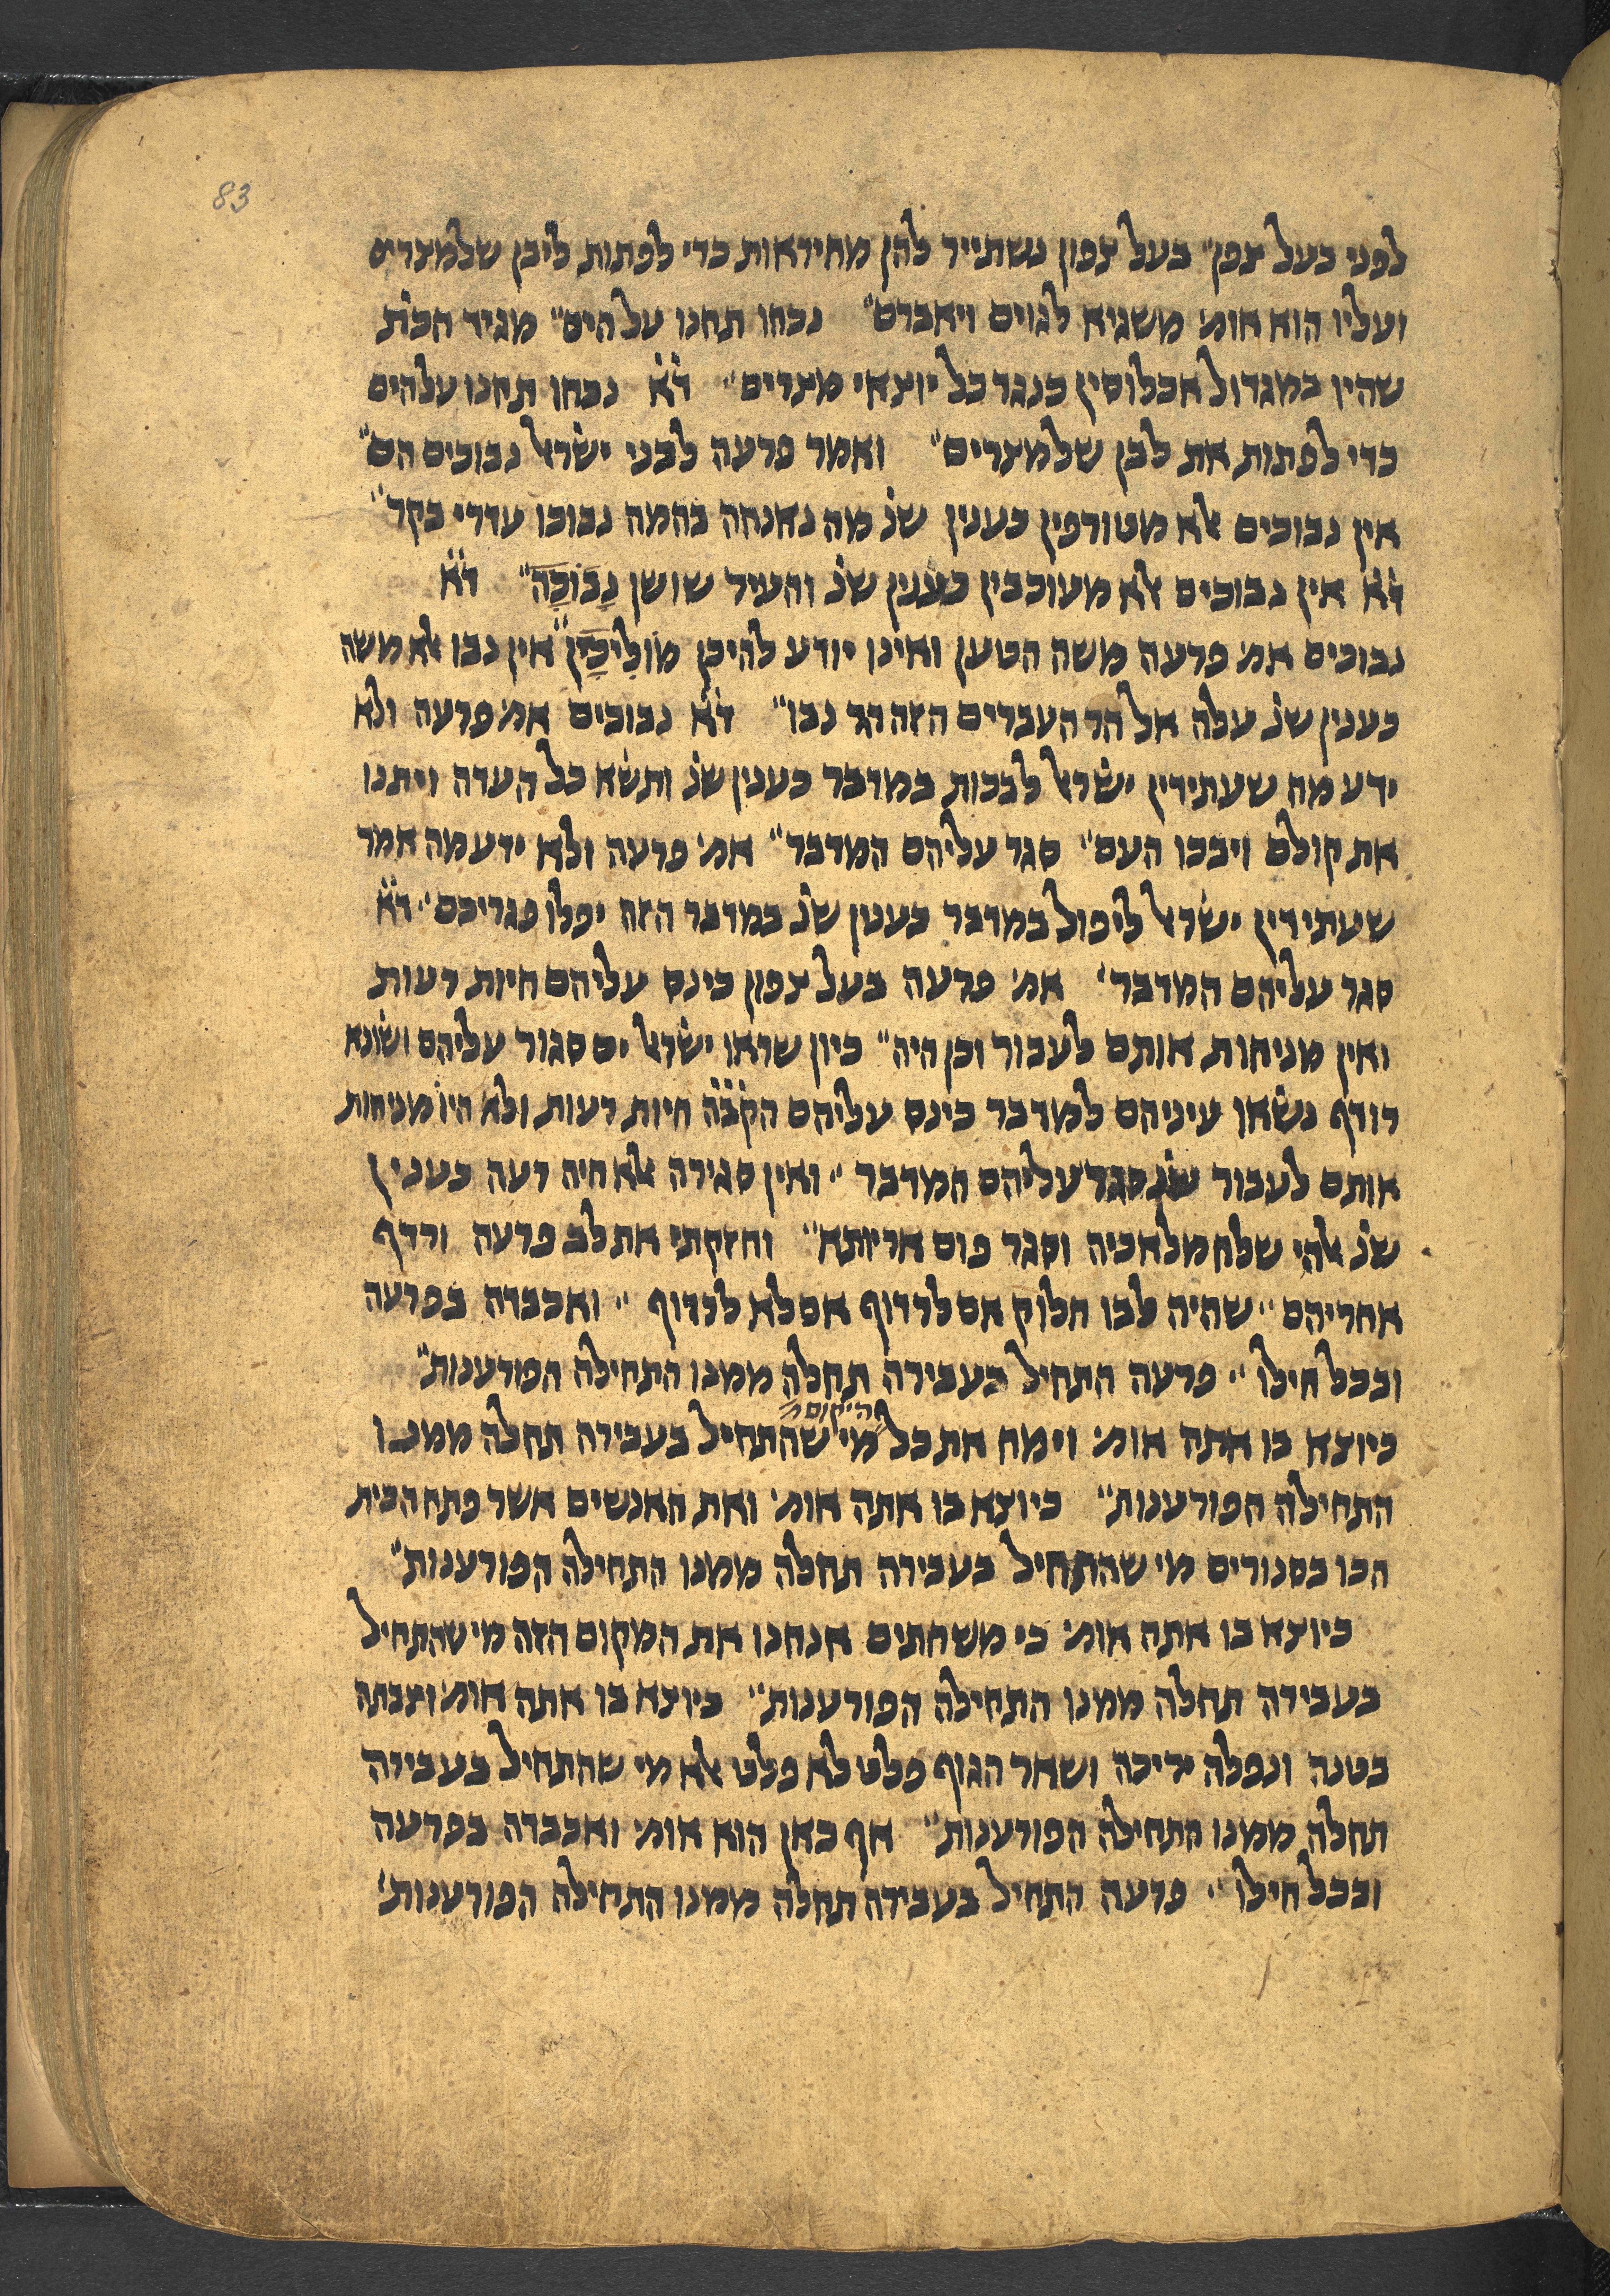 83
לפני בעל צפן״ בעל צפון נשתייר להן מהיראות כדי לפתות ליבן שלמצרים
ועליו הוא אומ׳ משגיא לגוים ויאבדם״ נכחו תחנו על הים״ מגיד הכת׳
שהיו במגדול אכלוסין כנגד כל יוצאי מצרים״ ד״א נכחו תחנו עלהים
כדי לפתות את לבן שלמצרים״ ואמר פרעה לבני ישר׳ נבוכים הם״
אין נבוכים אלא מטורפין כענין שנ׳ מה נאנחה בהמה נבוכו עדרי בקר״
ד״א אין נבוכים אלא מעורבבין כענין שנ׳ והעיר שושן נָבוֹכָה״ ד״א
נבוכים אמ׳ פרעה משה הטען ואינן יודע להיכן מוֹלִיכָן״ אין נבו אלא משה
כענין שנ׳ עלה אל הר העברים הזה הר נבו״ ד״א נבוכים אמ׳ פרעה ולא
ידע מה שעתידין ישראל לבכות במדבר כענין שנ׳ ותשא כל העדה ויתנו
את קולם ויבכו העם״ סגר עליהם המדבר״ אמ׳ פרעה ולא ידע מה אמר
שעתידין ישראל ליפול במדבר כענין שנ׳ במדבר הזה יפלו פגריכם״ ד״א
סגר עליהם המדבר׳ אמ׳ פרעה בעל צפון כינס עליהם חיות רעות
ואין מניחות אותם לעבור וכן היה״ כיון שראו ישראל ים סגור עליהם ושונא
רודף נשאו עיניהם למדבר כינס עליהם הקב״ה חיות רעות ולא היו מניחות
אותם לעבור שנ׳ סגר עליהם המדבר״ ואין סגירה אלא חיה רעה כענין
שנ׳ אלהי שלח מלאכיה וסגר פום אריותא״ וחזקתי את לב פרעה ורדף
אחריהם״ שהיה לבו חלוק אם לרדוף אם לא לרדוף״ ואכבדה בפרעה
ובכל חילו״ פרעה התחיל בעבירה תחלה ממנו התחילה הפורענות״
כיוצא בו אתה אומ׳ וימח את כל היקום מי שהתחיל בעבירה תחלה ממנו
התחילה הפורענות״ כיוצא בו אתה אומ׳ ואת האנשים אשר פתח הבית
הכו בסנורים מי שהתחיל בעבירה תחלה ממנו התחילה הפורענות״
כיוצא בו אתה אומ׳ כי משחתים אנחנו את המקום הזה מי שהתחיל
בעבירה תחלה ממנו התחילה הפורענות״ כיוצא בו אתה אומ׳ וצבתה
בטנה ונפלה יריכה ושאר הגוף פלט לא פלט אלא מי שהתחיל בעבירה
תחלה ממנו התחילה הפורענות״ אף כאן הוא אומ׳ ואכבדה בפרעה
ובכל חילו״ פרעה התחיל בעבירה תחלה ממנו התחילה הפורענות׳